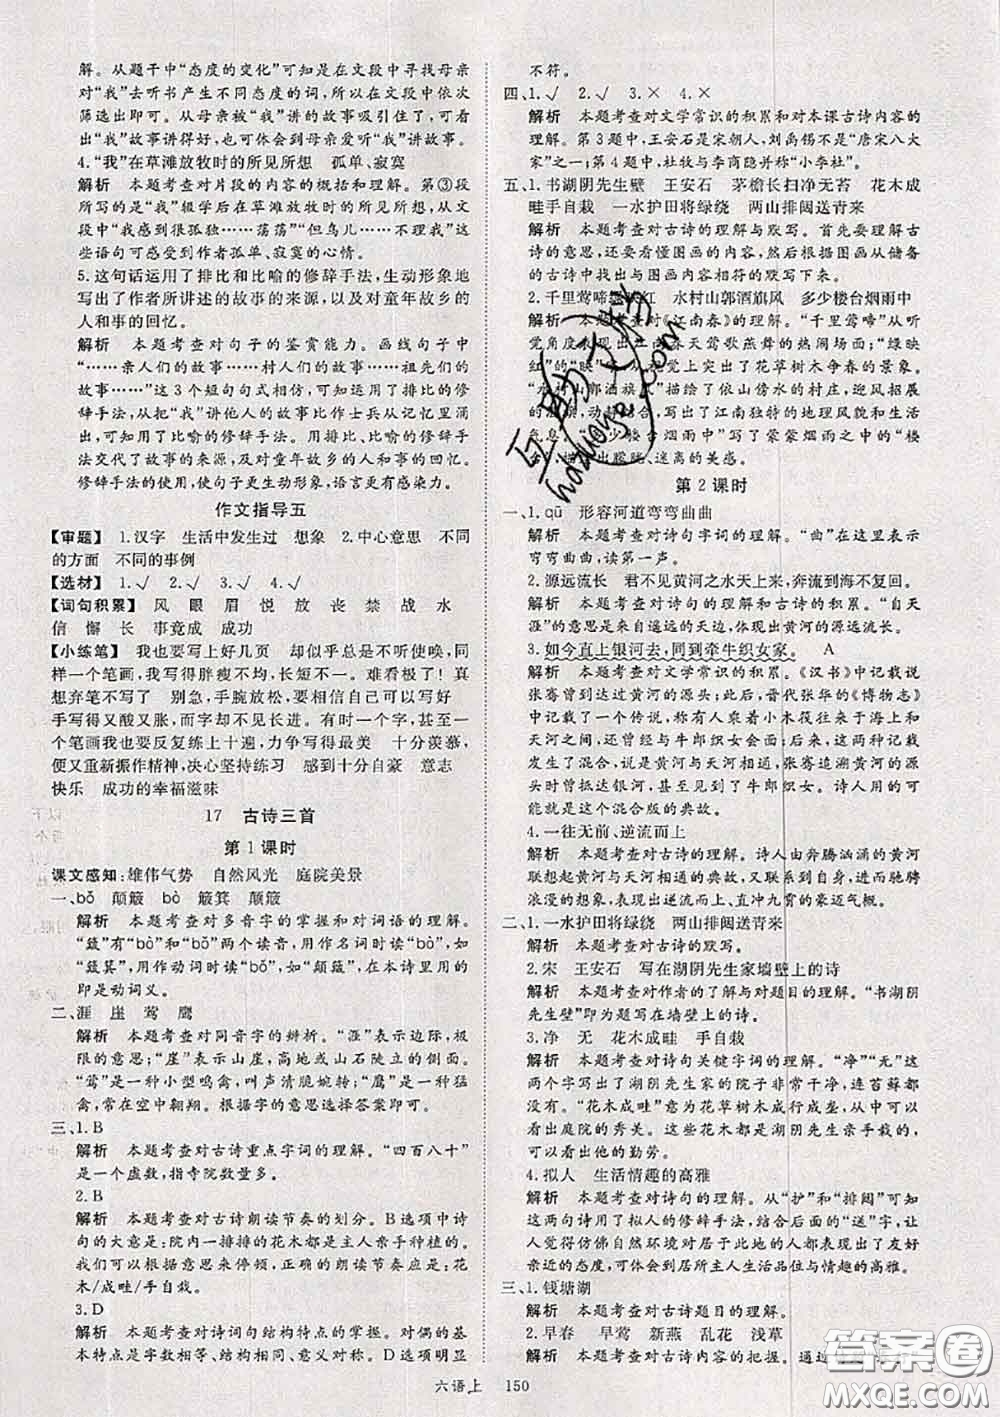 解。从题干中“态度的变化”可知是在文段中寻找母亲
对“我”去听书产生不同态度的词，所以在文段中仔细
筛选出即可。从母亲被“我”讲的故事吸引住了，可知
“我”故事讲得好，也可体会到母亲爱听“我”讲故事。
4.“我”在草滩放牧时的所见所想　孤单、寂寞
解析　本题考查对片段的内容的概括和理解。第③段
所写的是“我”辍学后在草滩放牧时的所见所想，从文
段中“我感到很孤独……荡荡”“但鸟儿……不理我”这
些语句可感受到作者孤单、寂寞的心情。
5.这句话运用了排比和比喻的修辞手法，生动形象地
写出了作者所讲述的故事的来源，以及对童年故乡的
人和事的回忆。
解析　本题考查对句子的鉴赏能力。画线句子中
“……亲人们的故事……村里人的故事……祖先们的
故事……”这3个短句句式相仿，可知运用了排比的修
辞手法，从把“我”讲他人的故事比作士兵从记忆里涌
出，可知用了比喻的修辞手法。用排比、比喻的修辞手法
交代了故事的来源，以及对童年故乡的人和事的回忆。
修辞手法的使用，使句子更生动形象，更有感染力。
作文指导五
【审题】1.汉字　生活中发生过　想象　2.中心意思　不同
的方面　不同的事例
【选材】1.√　2.√　3.√　4.√
【词句积累】风　眼　眉　悦　放　丧　禁　战　水
信　懈　长　事竟成　成功
【小练笔】我也要写上好几页　却似乎总是不听使唤，同
样一个笔画，我写得胖瘦不均，长短不一。天哪！我真
想弃笔不写了　别急，手腕放松，要持之以恒，坚持到底
手写得又酸又胀，而字却不见长进。有时一个字，甚至
一个笔画我也要反复练上十遍，力争写得最美　十分羡慕，
便又重新振作精神，决心坚持练习　感到十分自豪　意志
快乐　成功的幸福滋味
17　古诗三首
第1课时
课文感知：雄伟气势　自然风光　庭院美景
一、bǒ　颠簸　bò　簸箕　颠簸
解析　本题考查对多音字的掌握和对词语的理解。
“簸”有“bò”和“bǒ”两个读音，用作名词时读“bò”，如
“簸箕”，用作动词时读“bǒ”，如“颠簸”，在本诗里用的
即是动词义。
二、涯　崖　莺　鹰
解析　本题考查对同音字的辨析。“涯”表示边际，极
限的意思；“崖”表示山崖，高地或山石陡立的侧面。
“莺”是一种小型鸣禽，叫声清脆婉转；“鹰”是一种猛
禽，常在空中翱翔。根据字的意思选择答案即可。
三、1.B
解析　本题考查对古诗重点字词的理解。“四百八十”
是一个虚数，指寺院数量多。
2.B
解析　本题考查对古诗朗读节奏的划分。B选项中诗
句的大意是：院内一排排的花木都是主人亲手种植的。
我们可以根据意思来停顿，正确的朗读节奏应是：花
木/成畦/手自栽。
3.D
解析　本题考查对诗词句结构特点的掌握。对偶的基
本特点是字数相等、结构相同、意义对称。D选项明显
不符。
四、1.√　2.√　3.×　4.×
解析　本题考查对文学常识的积累和对本课古诗内容的
理解。第3题中，王安石是宋朝人，刘禹锡不是“唐宋八大
家”之一；第4题中，杜牧与李商隐并称“小李杜”。
五、1.书湖阴先生壁　王安石　茅檐长扫净无苔　花木成
畦手自栽　一水护田将绿绕　两山排闼送青来
解析　本题考查对古诗的理解与默写。首先要理解古
诗的意思，还要看懂图画的内容，然后根据从储备的
古诗中找出与图画内容相符的默写下来。
2.千里莺啼绿映红　水村山郭酒旗风　多少楼台烟雨中
解析　本题考查对《江南春》的理解。“千里莺啼”从听
觉角度表现出江南春天莺歌燕舞的热闹场面；“绿映
红”的“映”突出表现出了花草树木争春的景象。
“水村山郭酒旗风”描绘了依山傍水的村庄，迎风招展
的酒旗，动静结合，写出了江南独特的地理风貌和生活
气息；“多少楼台烟雨中”写了蒙蒙烟雨中的“楼
台”，凸显出朦胧、迷离的美感。
第2课时
一、1.qū　形容河道弯弯曲曲
解析　本题考查对诗句字词的理解。“曲”在这里表示
弯弯曲曲，读第一声。
2.源远流长　君不见黄河之水天上来，奔流到海不复回。
解析　本题考查对诗句的理解和古诗的积累。“自天
涯”的意思是来自遥远的天边，体现出黄河的源远流长。
3.如今直上银河去，同到牵牛织女家。　A
解析　本题考查对文学常识的积累。《汉书》中记载说
张骞曾到达过黄河的源头；此后，晋代张华的《博物志》
中记载了一个传说，称有人乘着小木筏往来于海上和
天河之间，还曾经与牛郎织女会面过，这两种记载
发生了混合，民间开始认为，张骞追溯黄河的源头
时曾抵达银河，还看到了牛郎织女。诗人用的可
能就是这个混合版的典故。
4.一往无前、逆流而上
解析　本题考查对古诗的理解。诗人由奔腾汹涌的黄河
联想起黄河与天河相通的典故，又联系到当天，展开浪漫
浪漫的想象，表现出逆流而上，直冲九霄的豪迈气概。
二、1.一水护田将绿绕　两山排闼送青来
解析　本题考查对古诗的默写。
2.宋　王安石　写在湖阴先生家墙壁上的诗
解析　本题考查对作者的了解与对题目的理解。“书湖阴
先生壁”即为写在墙壁上的诗。
3.净　无　花木成畦　手自栽
解析　本题考查对诗句关键字词的理解。“净”“无”这
两个字写出了湖阴先生家的院子非常干净，连苔藓都没
有。“花木成畦”意为花草树木成行成垄，从这里可以看
出庭院的秀美。由于这些花木都是湖阴先生亲手栽的，
可以看出他的勤劳。
4.拟人　生活情趣的高雅
解析　本题考查对诗句的理解。从“护”和“排闼”可知
这两句诗用了拟人的修辞手法，结合后面的“送”字，让
人觉得仿佛自然环境对居于此地的人也表现出了友好
亲近的态度，也衬托出居所主人生活品位与情趣的高雅。
三、1.钱塘湖
解析　本题考查对古诗题目的理解。
2.早春　早莺　新燕　乱花　浅草
解析　本题考查对古诗内容的把握。通过
六语上　150
答案圈
MXQE.COM